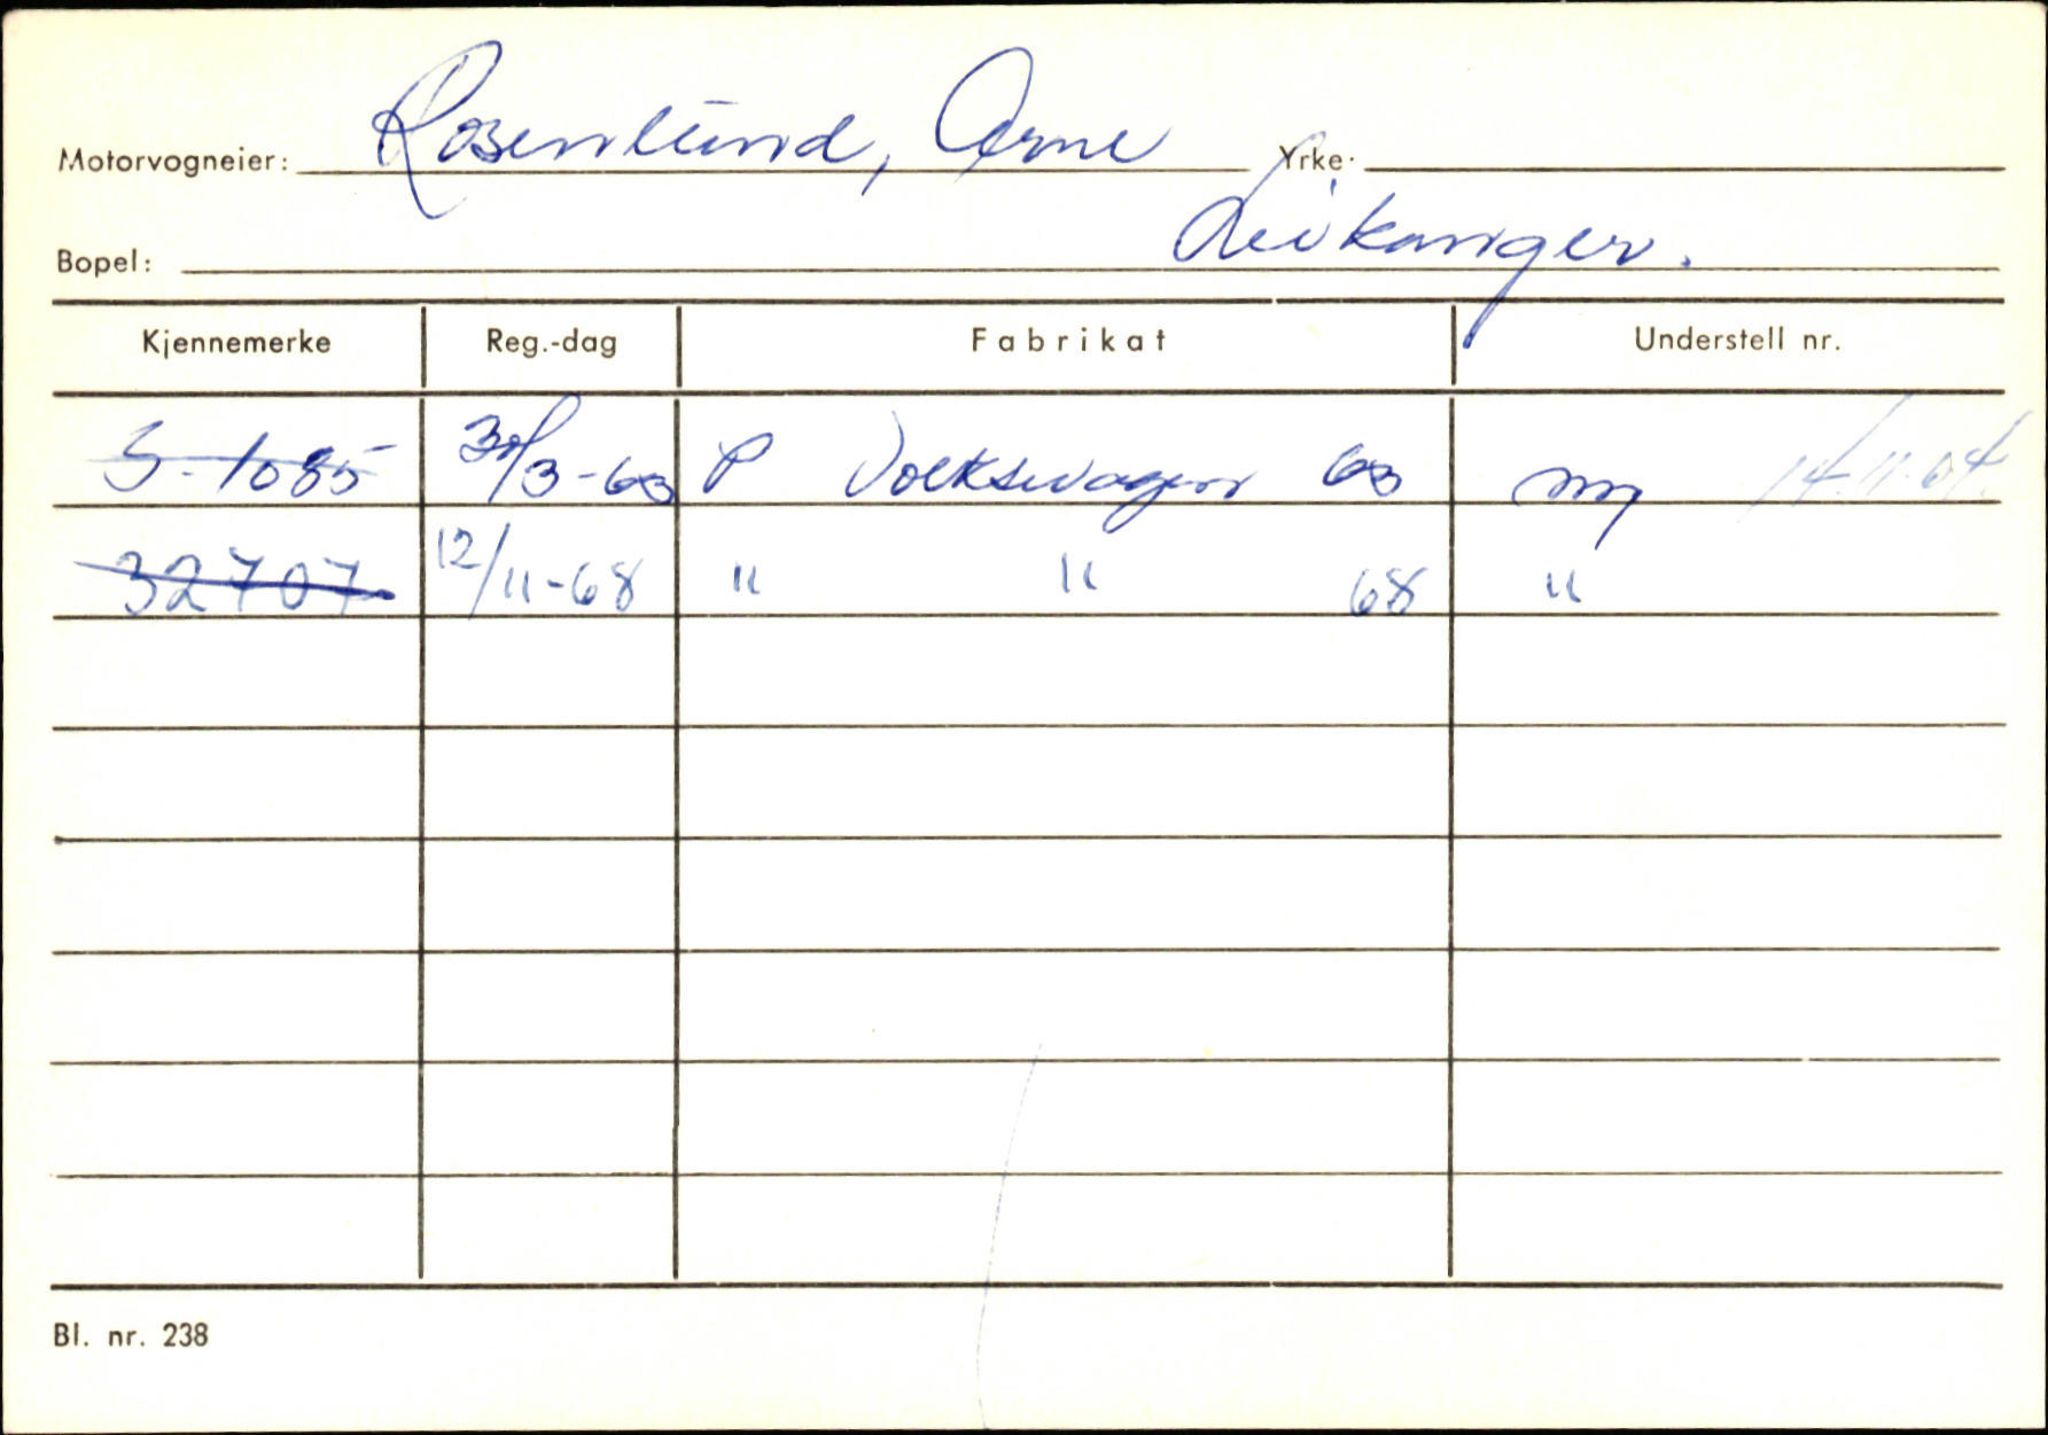 Motorvogneier: Rosenlund, Arne Yrke:
Bopel: Leikanger.
Kjennemerke Reg.-dag Fabrikat Understell nr.
S-1085 30/3-63 P Volkswagen 63 ny 14.11.64.
32707 12/11-68 " " 68 "
Bl. nr. 238